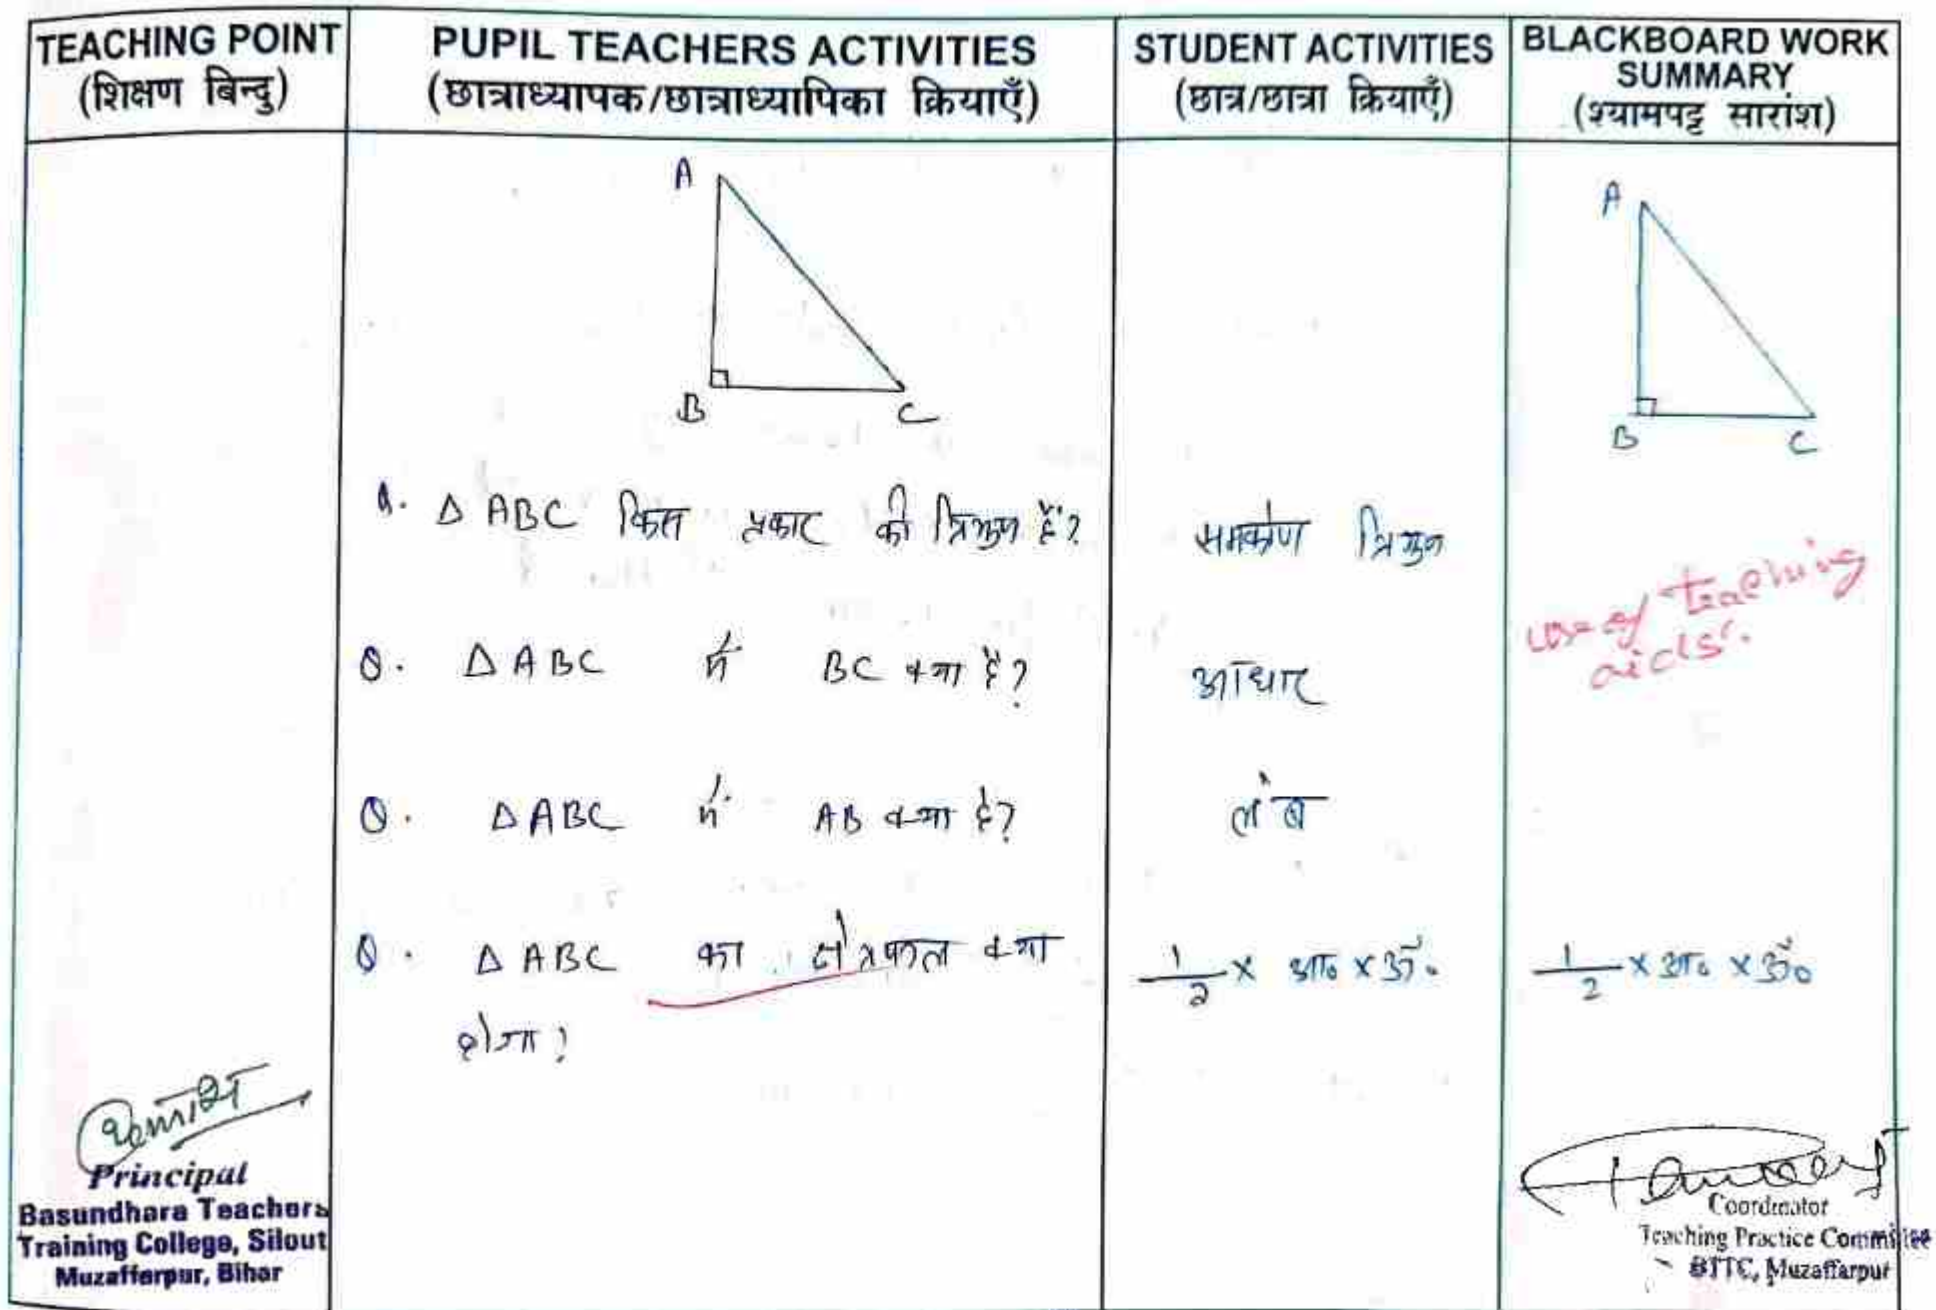 TEACHING POINT
(शिक्षण बिन्दु)
PUPIL TEACHERS ACTIVITIES
(छात्राध्यापक/छात्राध्यापिका क्रियाएँ)
STUDENT ACTIVITIES
(छात्र/छात्रा क्रियाएँ)
BLACKBOARD WORK
SUMMARY
(श्यामपट्ट सारांश)
A
B
C
A
B
C
Q. Δ ABC किस प्रकार की त्रिभुज है?
समकोण त्रिभुज
use of teaching
aids.
Q. Δ ABC में BC क्या है?
आधार
Q. Δ ABC में AB क्या है?
लंब
Q. Δ ABC का क्षेत्रफल क्या
होगा?
1/2 × आ० × ऊँ०
1/2 × आ० × ऊँ०
Principal
Basundhara Teachers
Training College, Silout
Muzafferpur, Bihar
Coordinator
Teaching Practice Committee
BTTC, Muzaffarpur